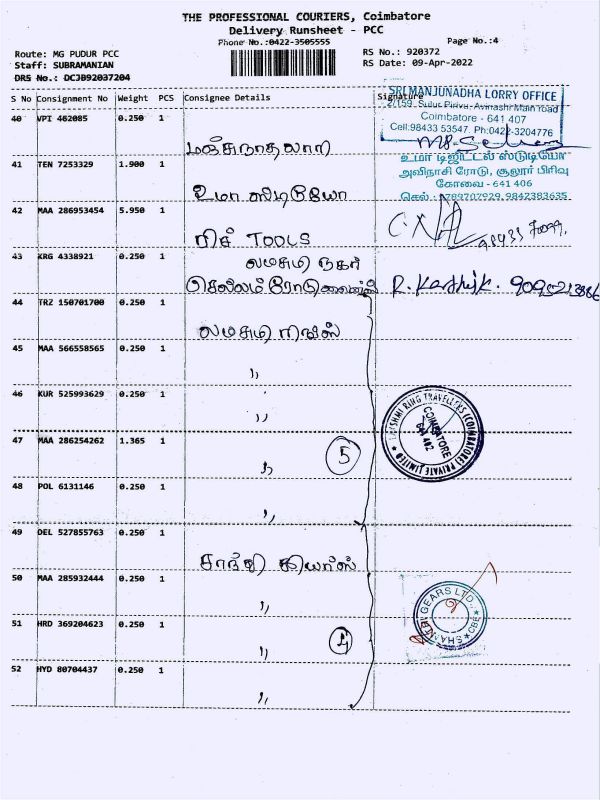 THE PROFESSIONAL COURIERS, Coimbatore
Delivery Runsheet - PCC
Phone No.:0422-3505555
Page No.:4
Route: MG PUDUR PCC
RS No.: 920372
Staff: SUBRAMANIAN
RS Date: 09-Apr-2022
DRS No.: DCJB92037204
S No Consignment No Weight PCS Consignee Details Signature
SRI MANJUNADHA LORRY OFFICE
2/159, Sulur Pirivu, Avinashi Main road
Coimbatore - 641 407
Cell:98433 53547, Ph:0422-3204776
40 VPI 462085 0.250 1 மஞ்சுநாதலாரி
உமா டிஜிட்டல் ஸ்டுடியோ
அவிநாசி ரோடு, சூலூர் பிரிவு
கோவை - 641 406
செல் : 9789707929, 9842383635
41 TEN 7253329 1.900 1 உமா ஸ்டுடியோ
42 MAA 286953454 5.950 1 TOOLS
43 KRG 4338921 0.250 1 லட்சுமி நகர்
செல்லம் ரோடு R. Karthik.
44 TRZ 150701700 0.250 1 லட்சுமி ரிங்ஸ்
45 MAA 566558565 0.250 1 ,,
46 KUR 525993629 0.250 1 ,,
LAKSHMI RING TRAVELLERS (COIMBATORE) PRIVATE LIMITED
COIMBATORE
641 402
47 MAA 286254262 1.365 1 ,, 5
48 POL 6131146 0.250 1 ,,
49 DEL 527855763 0.250 1 சாந்தி கியர்ஸ்
50 MAA 285932444 0.250 1 ,,
SHANTHI GEARS LTD., CBE
51 HRD 369204623 0.250 1 ,, 4
52 HYD 80704437 0.250 1 ,,